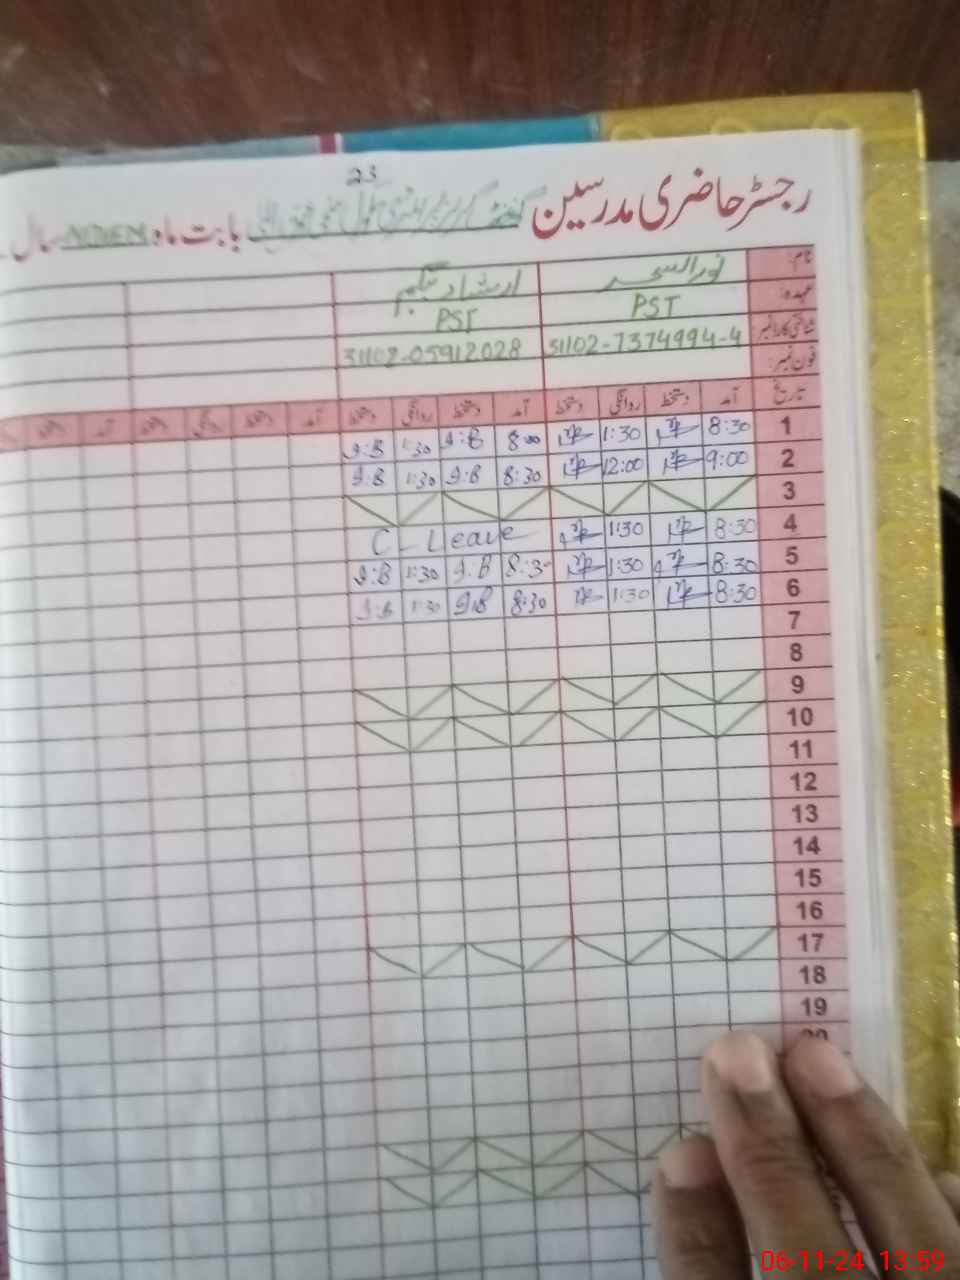 23
رجسٹر حاضری مدرسین
بابت ماہ NOVEN سال
نام: نورالسحر ارشاد بیگم
عہدہ: PST PST
شناختی کارڈ نمبر: 31102-7374994-4 31102-05912028
فون نمبر:
تاریخ آمد دستخط روانگی دستخط آمد دستخط روانگی دستخط آمد دستخط روانگی دستخط آمد دستخط
1 8:30 1:30 8:00 I:B 1:30 I:B
2 9:00 12:00 8:30 I:B 1:30 I:B
3
4 8:30 1:30 C Leave
5 8:30 1:30 8:30 I:B 1:30 I:B
6 8:30 1:30 8:30 I.B 1:30 I:B
7
8
9
10
11
12
13
14
15
16
17
18
19
20
06-11-24 13:59